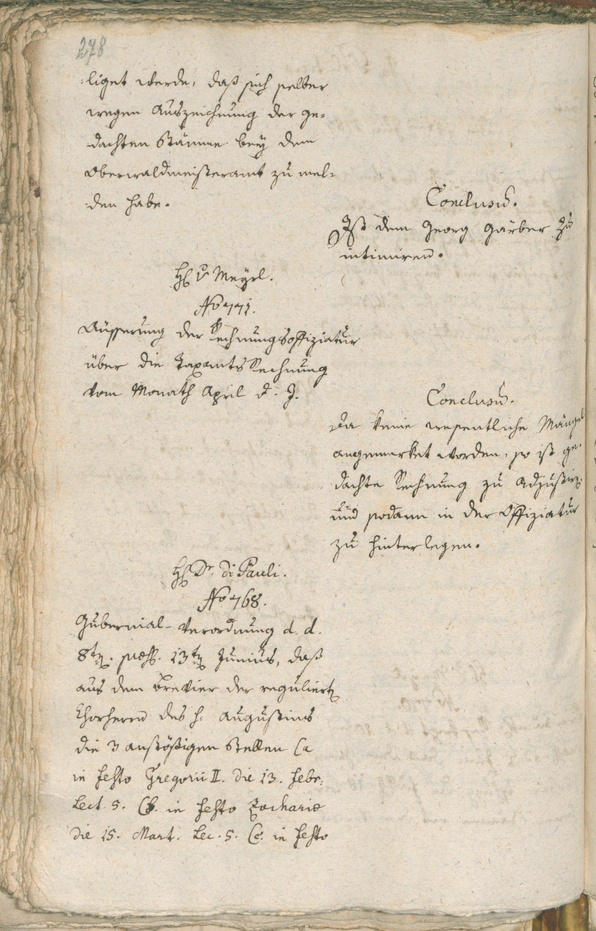 278
liget werde, daß sich selber
wegen Auszeichnung der ge-
dachten Stämme bey dem
Oberwaldmeisteramt zu mel-
den habe.
Conclusũ.
Ist dem Georg Gärber zu
intimiren.
H. v. Meÿrl.
No 771.
Äusserung der Rechnungsoffiziatur
über die Taxamts Rechnung
vom Monath April d. J.
Conclusũ.
Da keine wesentliche Mängel
angemerket worden, so ist ge-
dachte Rechnung zu adjustirn
und sodann in der Offiziatur
zu hinterlegen.
H. Dr. di Pauli.
No 768.
Gubernial-Verordnung d. d.
8tn. præs. 13tn Junius, daß
aus dem Brevier der regulirtn
Chorherrn des h. Augustinus
die 3 anstößigen Stellen (a
in festo Gregorii II. die 13. Febr.
Lect. 5. (b. in festo Zacharie
die 15. Mart. Lec. 5. (c. in festo